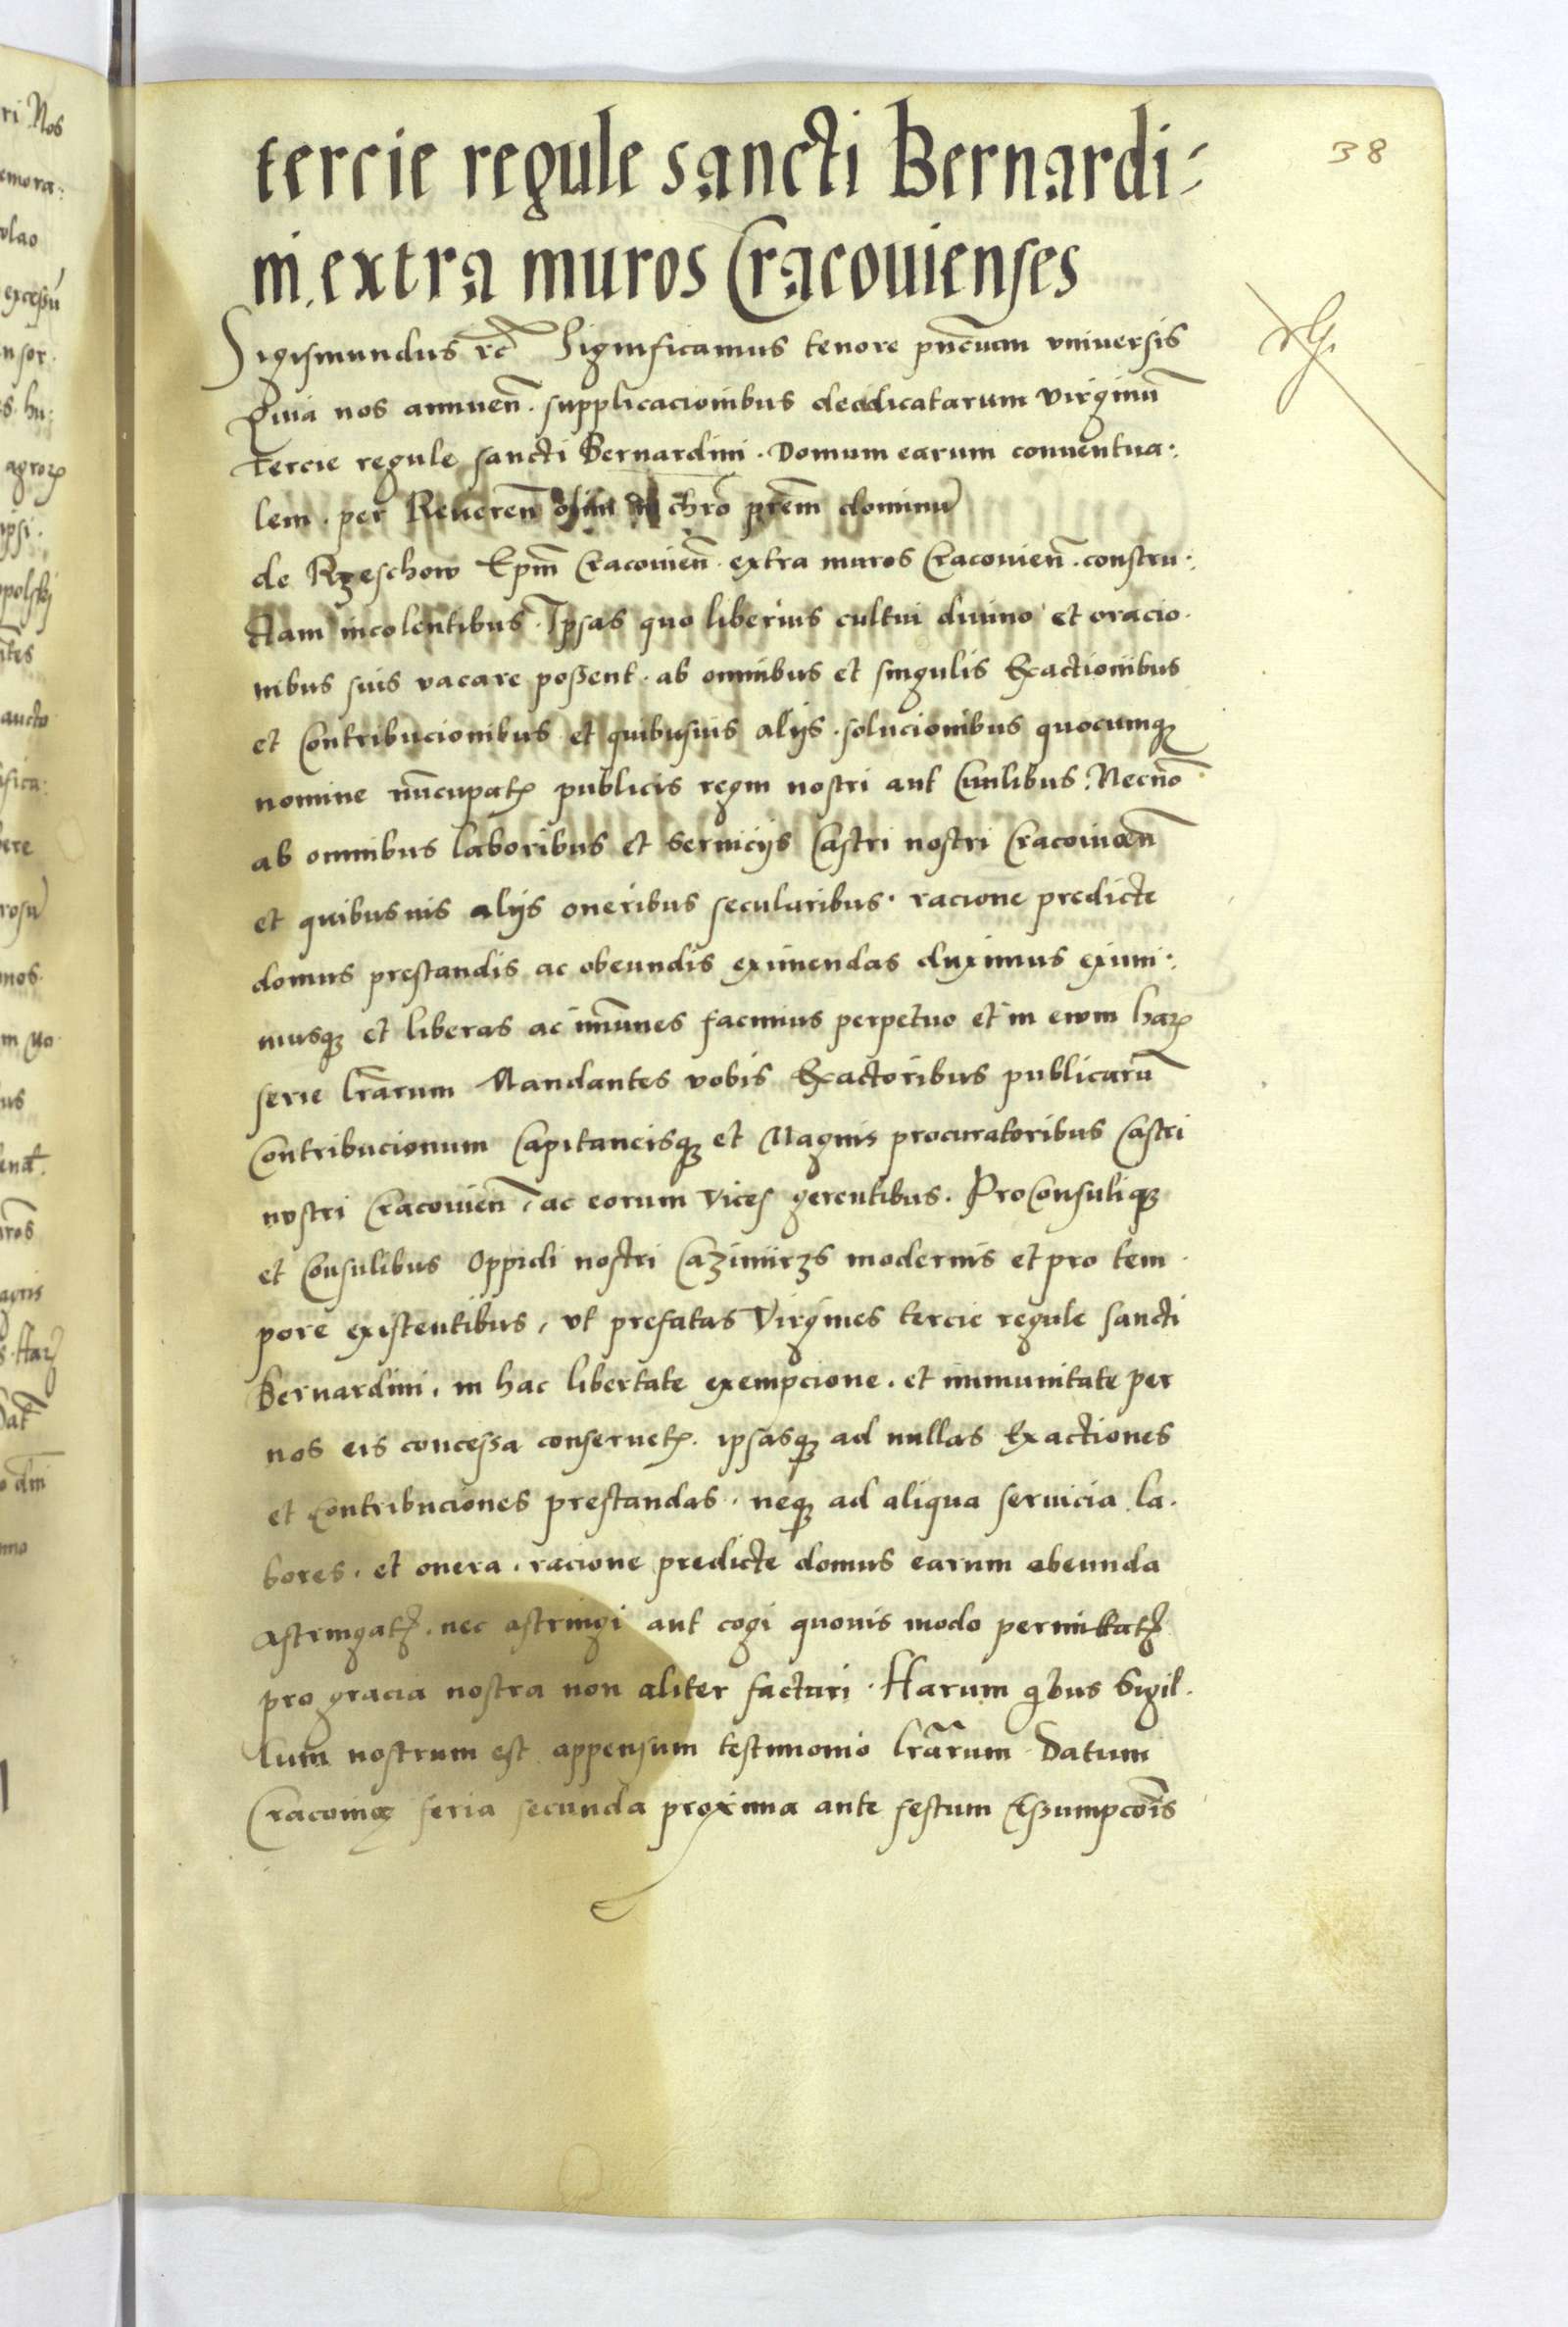 38
tercie regule sancti Bernardi-
ni extra muros Cracouienses
Sigismundus rc̄ Significamus tenore pn̄cium vniuersis
Quia nos annuen̄. supplicacionibus dedicatarum virginū
Tercie regule sancti Bernardini. Domum earum conuentua:
lem. per Reueren̄ olim in chr̄o prēm dominū
de Rzeschow Epm̄ Cracouien̄. extra muros Cracouien̄. constru:
ctam incolentibus. Ipsas quo liberius cultui diuino et oracio.
nibus suis vacare possent. ab omnibus et singulis Exactionibus
et Contribucionibus et quibusuis alijs. solucionibus quocumqꝫ
nomine nūcupatꝭ publicis regni nostri aut Ciuilibus. Necnō
ab omnibus laboribus et seruicijs Castri nostri Cracouien̄
et quibusuis alijs oneribus secularibus. racione predicte
domus prestandis ac obeundis eximendas duximus eximi:
musqꝫ et liberas ac imūnes facimus perpetuo et in ewm harꝭ
serie lr̄arum Mandantes vobis Exactoribus publicarū
Contribucionum Capitaneisqꝫ et Magnis procuratoribus Castri
nostri Cracouien̄, ac eorum vices gerentibus. ProConsuliqꝫ
et Consulibus Oppidi nostri Cazimirzs modernis et pro tem.
pore existentibus, vt prefatas Virgines tercie regule sancti
Bernardini, in hac libertate exempcione. et immunitate per
nos eis concessa conseruetꝭ. ipsasqꝫ ad nullas Exactiones
et Contribuciones prestandas. neqꝫ ad aliqua seruicia la.
bores. et onera. racione predicte domus earum obeunda
astringatꝭ. nec astringi aut cogi quouis modo permittatꝭ
pro gracia nostra non aliter facturi. Harum qibus Sigil.
lum nostrum est appensum testimonio lr̄arum. Datum
Cracouię feria secunda proxima ante festum Assumpcōis